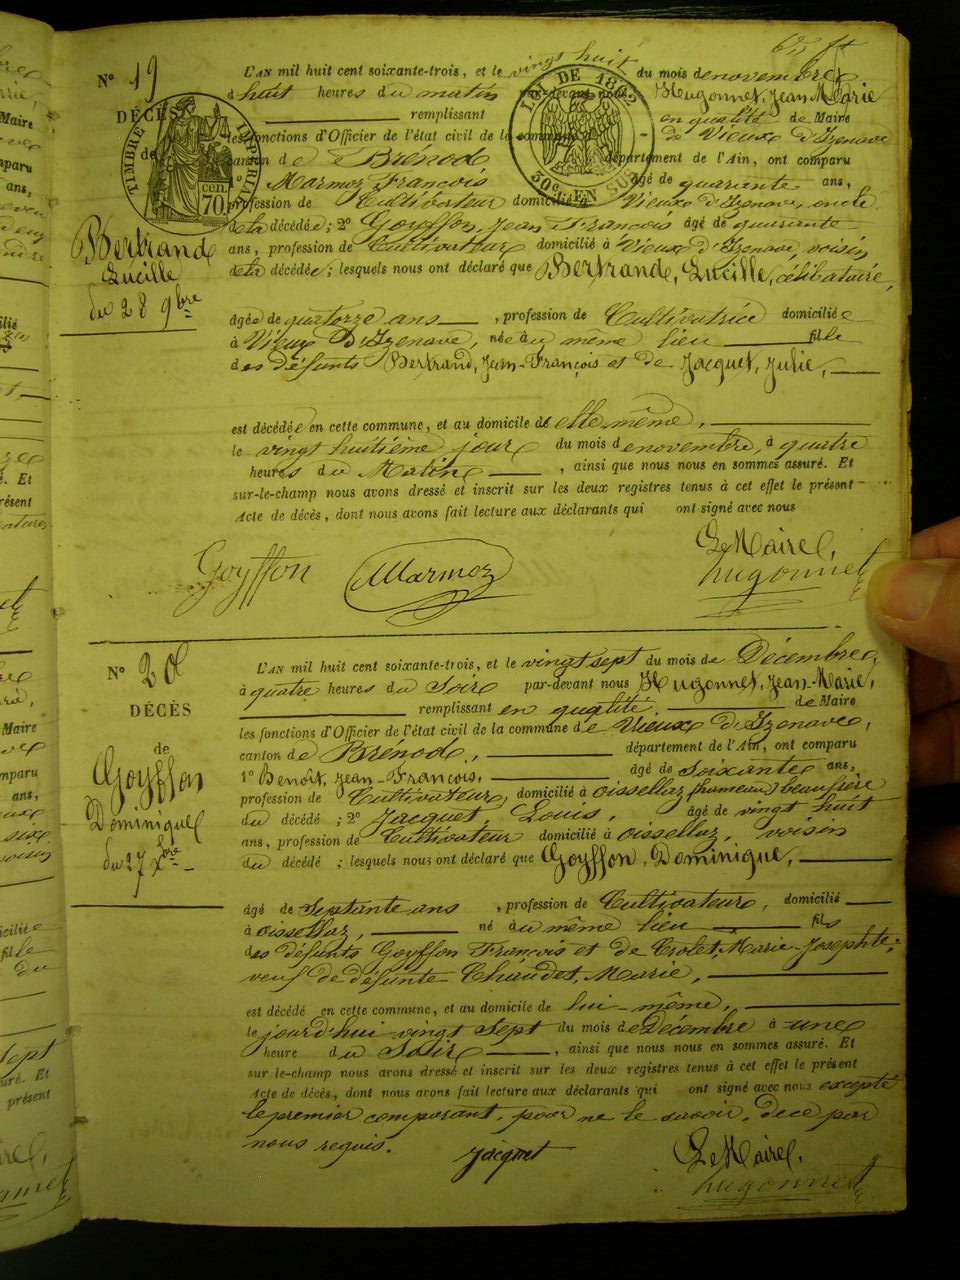 6e ft
N° 19
DÉCÈS
de
Bertrand
Lucille
du 28 9bre
TIMBRE IMPERIAL
cen.
70.
LOI DE 1862
30c. EN SUS
L'AN mil huit cent soixante-trois, et le vingt huit du mois de novembre,
à huit heures du matin par-devant nous Hugonnet, Jean Marie
remplissant en qualité de Maire
les fonctions d'Officier de l'état civil de la commune de Vieux d'Izenave
canton de Brénod département de l'Ain, ont comparu
1° Marmoz François âgé de quarante ans,
profession de Cultivateur domicilié à Vieux d'Izenave, oncle
de la décédée ; 2° Goyffon, Jean François âgé de quarante
ans, profession de Cultivateur domicilié à Vieux d'Izenave, voisin
de la décédée ; lesquels nous ont déclaré que Bertrande, Lucille, célibataire,
âgée de quatorze ans , profession de Cultivatrice domiciliée
à Vieux d'Izenave, née au même lieu fille
des défunts Bertrand, Jean-François et de Jacquet, Julie,
est décédée en cette commune, et au domicile de elle même,
le vingt huitième jour du mois de novembre, à quatre
heures du Matin , ainsi que nous nous en sommes assuré. Et
sur-le-champ nous avons dressé et inscrit sur les deux registres tenus à cet effet le présent
Acte de décès, dont nous avons fait lecture aux déclarants qui ont signé avec nous
Le Maire,
Goyffon Marmoz hugonnet
N° 20
DÉCÈS
de
Goyffon
Dominique
du 27 Xbre
L'AN mil huit cent soixante-trois, et le vingt sept du mois de Décembre,
à quatre heures du Soir par-devant nous Hugonnet, Jean-Marie,
remplissant en qualité de Maire
les fonctions d'Officier de l'état civil de la commune de Vieux d'Izenave,
canton de Brénod, département de l'Ain, ont comparu
1° Benoît, Jean-François, âgé de soixante ans,
profession de Cultivateur, domicilié à oissellaz (humeau) beau frère
du décédé ; 2° Jacquet, Louis, âgé de vingt huit
ans, profession de Cultivateur domicilié à oissellaz, voisin
du décédé ; lesquels nous ont déclaré que Goyffon, Dominique,
âgé de Septante ans , profession de Cultivateur, domicilié
à oissellaz, né au même lieu fils
des défunts Goyffon François et de Crolet, Marie-Josephte;
veuf de défunte Chaudet, Marie,
est décédé en cette commune, et au domicile de lui-même,
le jourd'hui vingt Sept du mois de Décembre à une
heure du Soir , ainsi que nous nous en sommes assuré. Et
sur-le-champ nous avons dressé et inscrit sur les deux registres tenus à cet effet le présent
Acte de décès, dont nous avons fait lecture aux déclarants qui ont signé avec nous excepté
le premier comparant, pour ne le savoir, de ce par
nous requis.
Jacquet Le Maire,
hugonnet